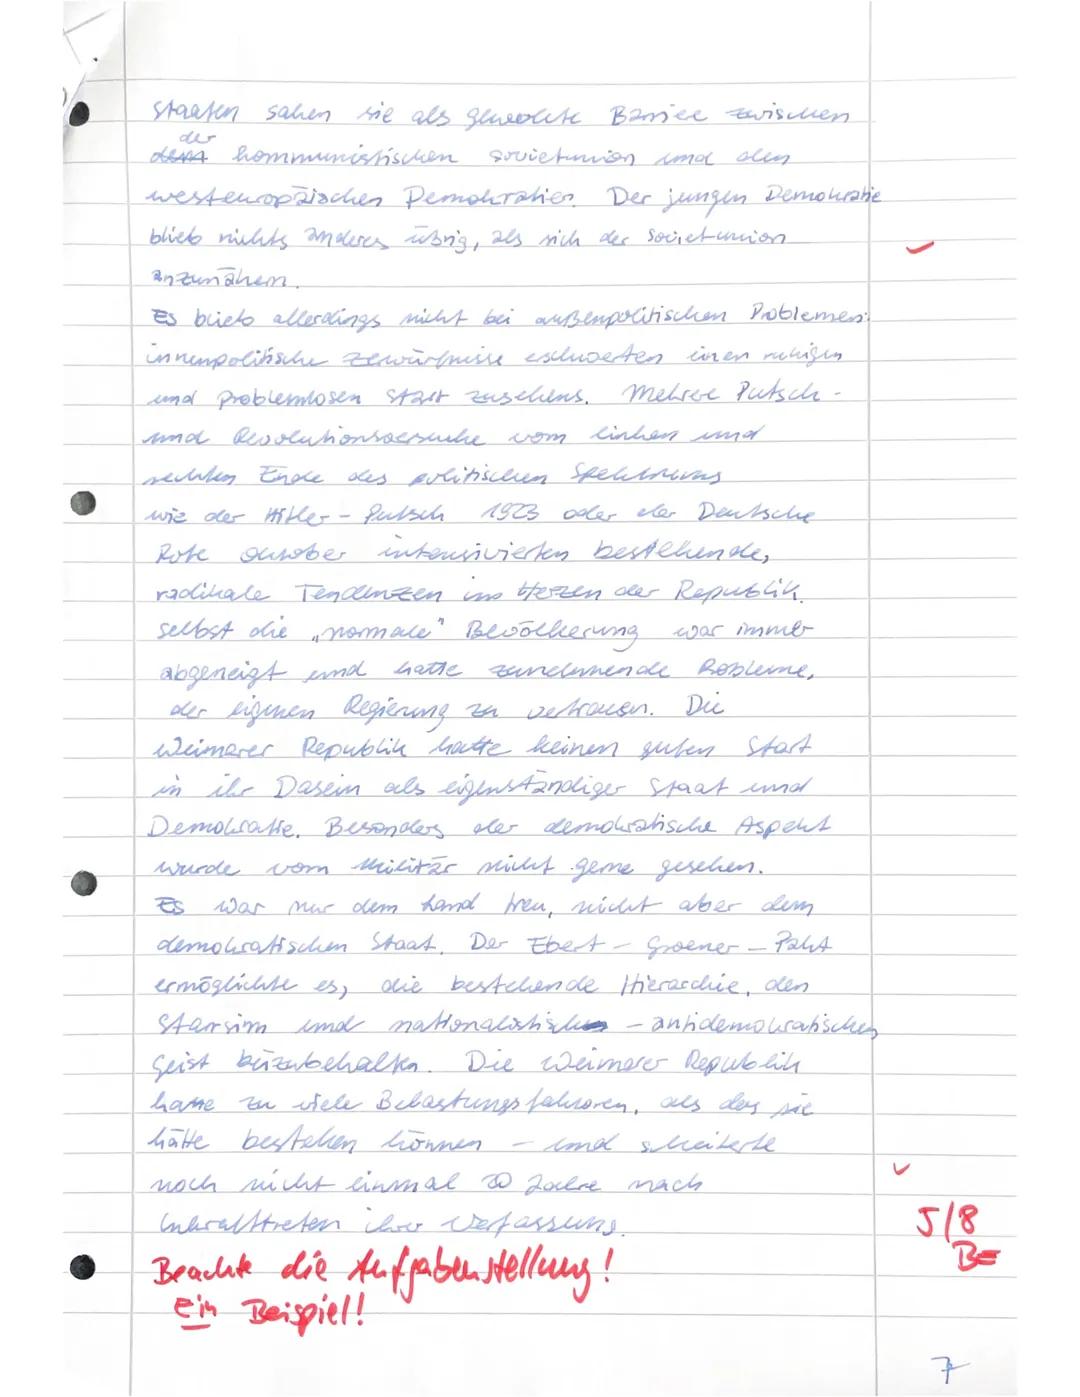 staaten sahen sie als gewollte Barriere zwischen
der
dem kommunistischen Sovietunion und den
westeuropäischen Demokratien. Der jungen Demokratie
blieb nichts anderes übrig, als sich der Sovietunion
anzunähern.
Es blieb allerdings nicht bei außenpolitischen Problemen:
innenpolitische Zerwürfnisse eschwerten einen ruhigen
und problemlosen Start zusehens. Mehrere Putsch-
und Revolutionsversuche vom linken und
rechten Ende des politischen Spektrums
wie der Hitler-Putsch 1923 oder der Deutsche
Rote Oktober intensivierten bestehende,
radikale Tendenzen im Herzen der Republik.
Selbst die „normale" Bevölkerung war immer
abgeneigt und hatte zunehmende Probleme,
der eigenen Regierung zu vertrauen. Die
Weimarer Republik hatte keinen guten Start
in ihr Dasein als eigenständiger Staat und
Demokratie. Besonders der demokratische Aspekt
wurde vom Militär nicht gerne gesehen.
Es war nur dem Land treu, nicht aber dem
demokratischen Staat. Der Ebert-Groener-Pakt
ermöglichte es, die bestehende Hierarchie, den
Starrsinn und nationalistisch - antidemokratischen
Geist beizubehalten. Die Weimarer Republik
hatte zu viele Belastungsfaktoren, als das sie
hätte bestehen können - und scheiterte
noch nicht einmal 20 Jahre nach
Inkrafttreten ihrer Verfassung.
5/8
BE
Beachte die Aufgabenstellung!
Ein Beispiel!
7